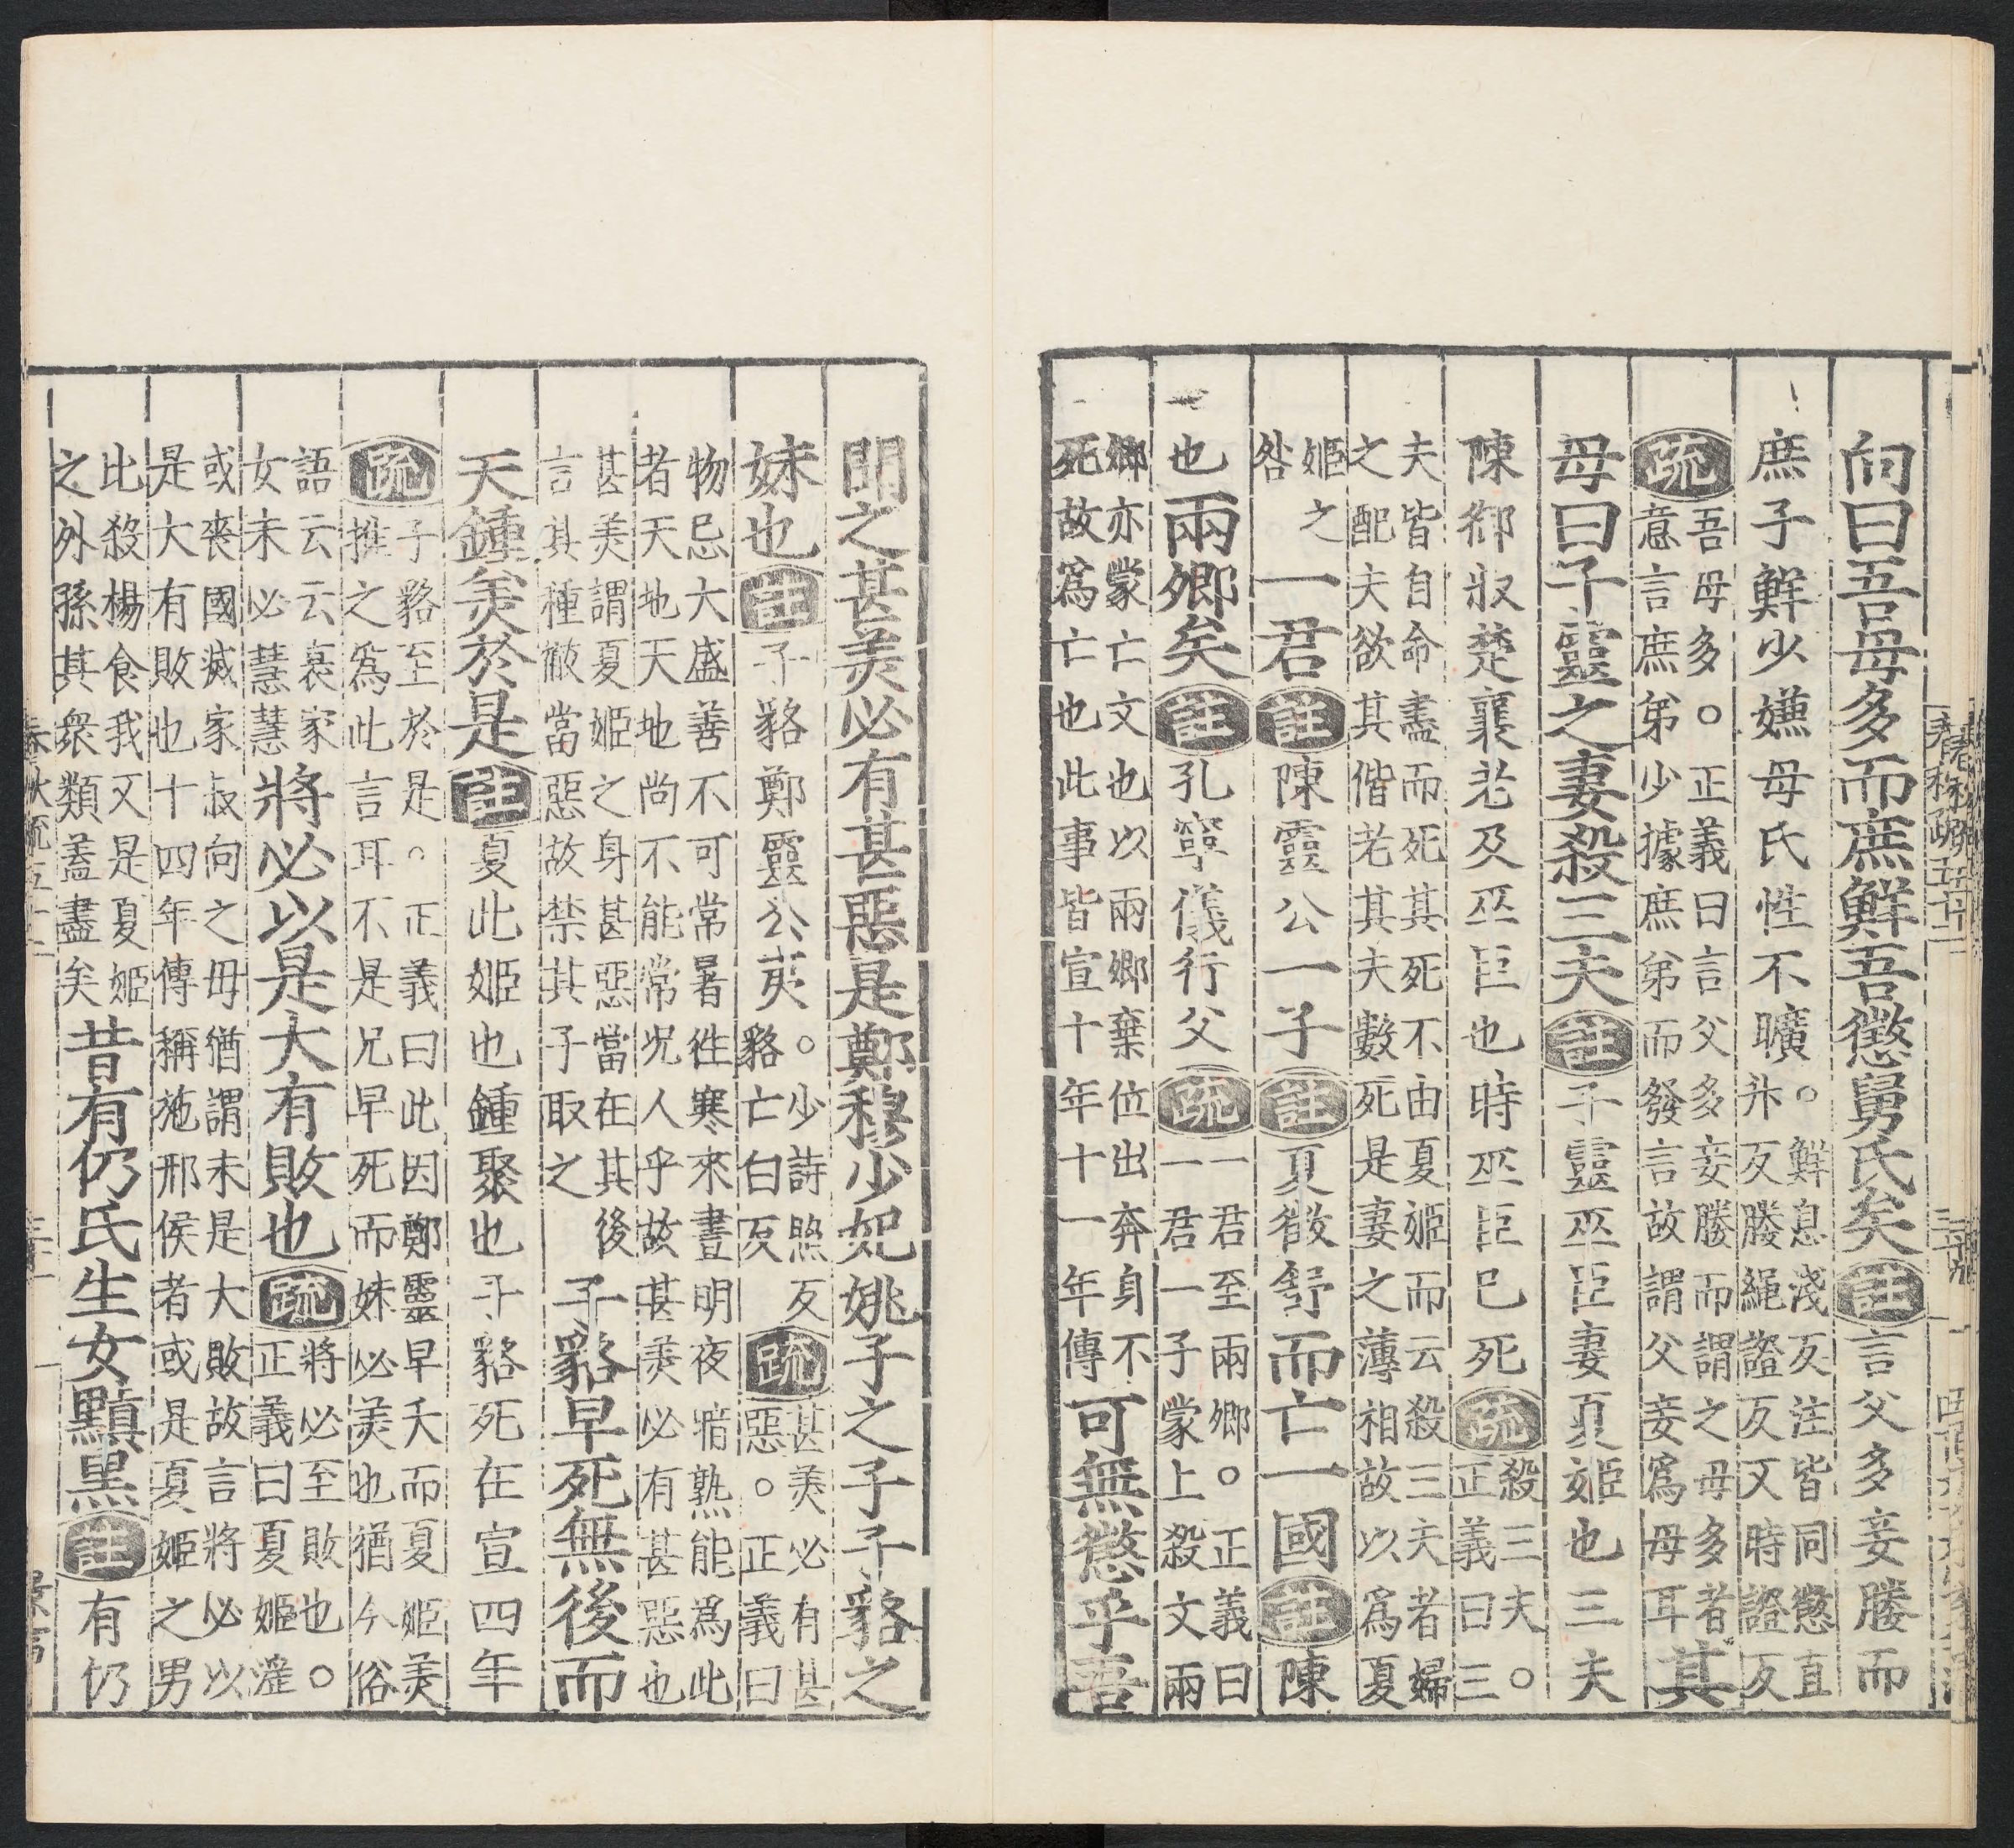 向曰吾母多而庶鮮吾懲舅氏矣註言父多妾媵而
庶子鮮少嫌母氏性不曠。鮮息淺反注皆同懲直升反媵繩證反又時證反
疏吾母多。正義曰言父多妾媵而謂之母多者意言庶弟少據庶弟而發言故謂父妾爲母耳其
母曰子靈之妻殺三夫註子靈巫臣妻夏姬也三夫
陳御叔楚襄老及巫臣也時巫臣已死疏殺三夫。正義曰三
夫皆自命盡而死其死不由夏姬而云殺三夫者婦之配夫欲其偕老其夫數死是妻之薄相故以爲夏
姬之咎一君註陳靈公一子註夏徵舒而亡一國註陳
也兩卿矣註孔寧儀行父疏一君至兩卿。正義曰一君一子蒙上殺文兩
卿亦蒙亡文也以兩卿棄位出奔身不死故爲亡也此事皆宣十年十一年傳可無懲乎吾
聞之甚美必有甚惡是鄭穆少妃姚子之子子貉之
妹也註子貉鄭靈公夷。少詩照反貉亡白反疏甚美必有甚惡。正義曰
物忌大盛善不可常暑徃寒來晝明夜暗熟能爲此者天地天地尚不能常况人乎故甚美必有甚惡也
甚美謂夏姬之身甚惡當在其後言其種徹當惡故禁其子取之子貉早死無後而
天鍾美於是註夏此姬也鍾聚也子貉死在宣四年
疏子貉至於是。正義曰此因鄭靈早夭而夏姬美推之爲此言耳不是兄早死而妹必美也猶今俗
語云云衰家女未必慧慧將必以是大有敗也疏將必至敗也。正義曰夏姬淫
或喪國滅家叔向之母猶謂未是大敗故言將必以是大有敗也十四年傳稱施邢侯者或是夏姬之男
此殺楊食我又是夏姬之外孫其衆類蓋盡矣昔有仍氏生女黰黑註有仍